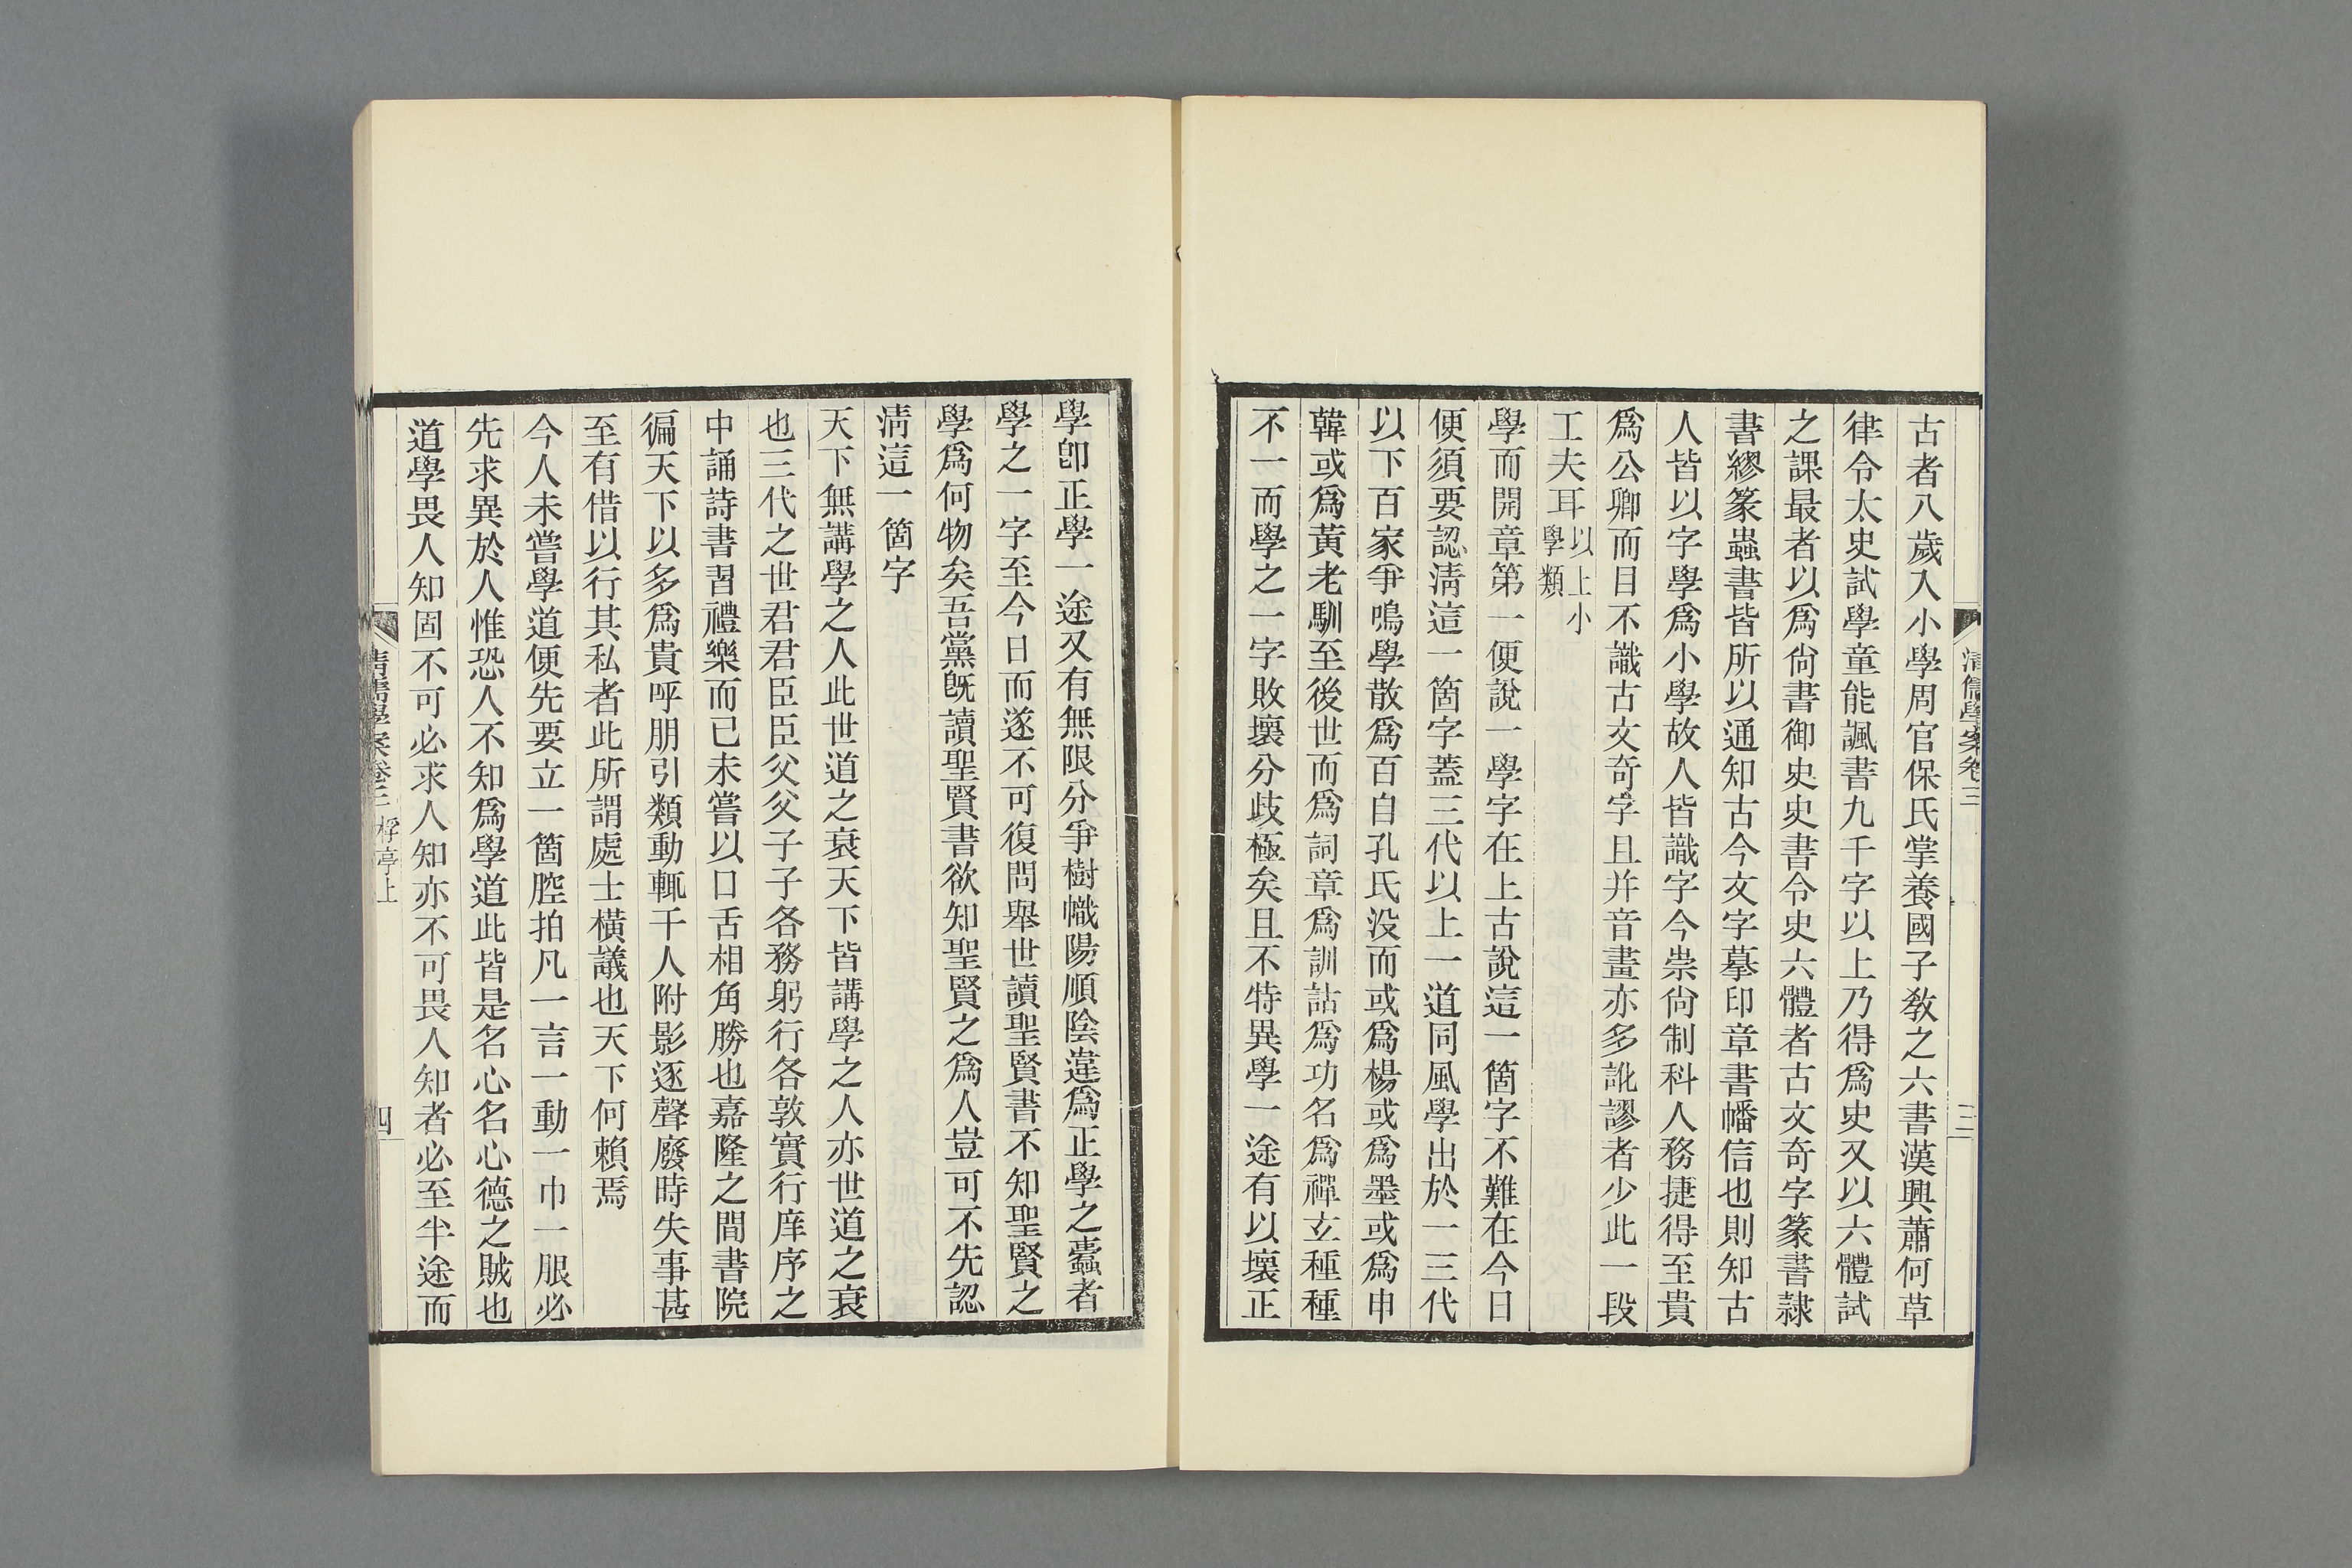 清儒學案卷三
三
古者八歲入小學周官保氏掌養國子敎之六書漢興蕭何草
律令太史試學童能諷書九千字以上乃得爲史又以六體試
之課最者以爲尙書御史史書令史六體者古文奇字篆書隸
書繆篆蟲書皆所以通知古今文字摹印章書幡信也則知古
人皆以字學爲小學故人皆識字今崇尙制科人務捷得至貴
爲公卿而目不識古文奇字且并音畫亦多訛謬者少此一段
工夫耳以上小學類
學而開章第一便說一學字在上古說這一箇字不難在今日
便須要認淸這一箇字蓋三代以上一道同風學出於一三代
以下百家爭鳴學散爲百自孔氏没而或爲楊或爲墨或爲申
韓或爲黃老馴至後世而爲詞章爲訓詁爲功名爲禪玄種種
不一而學之一字敗壞分歧極矣且不特異學一途有以壞正
學卽正學一途又有無限分爭樹幟陽順陰違爲正學之蠹者
學之一字至今日而遂不可復問舉世讀聖賢書不知聖賢之
學爲何物矣吾黨旣讀聖賢書欲知聖賢之爲人豈可不先認
淸這一箇字
天下無講學之人此世道之衰天下皆講學之人亦世道之衰
也三代之世君君臣臣父父子子各務躬行各敦實行庠序之
中誦詩書習禮樂而已未嘗以口舌相角勝也嘉隆之間書院
徧天下以多爲貴呼朋引類動輒千人附影逐聲廢時失事甚
至有借以行其私者此所謂處士橫議也天下何賴焉
今人未嘗學道便先要立一箇腔拍凡一言一動一巾一服必
先求異於人惟恐人不知爲學道此皆是名心名心德之賊也
道學畏人知固不可必求人知亦不可畏人知者必至半途而
清儒學案卷三 桴亭上
四